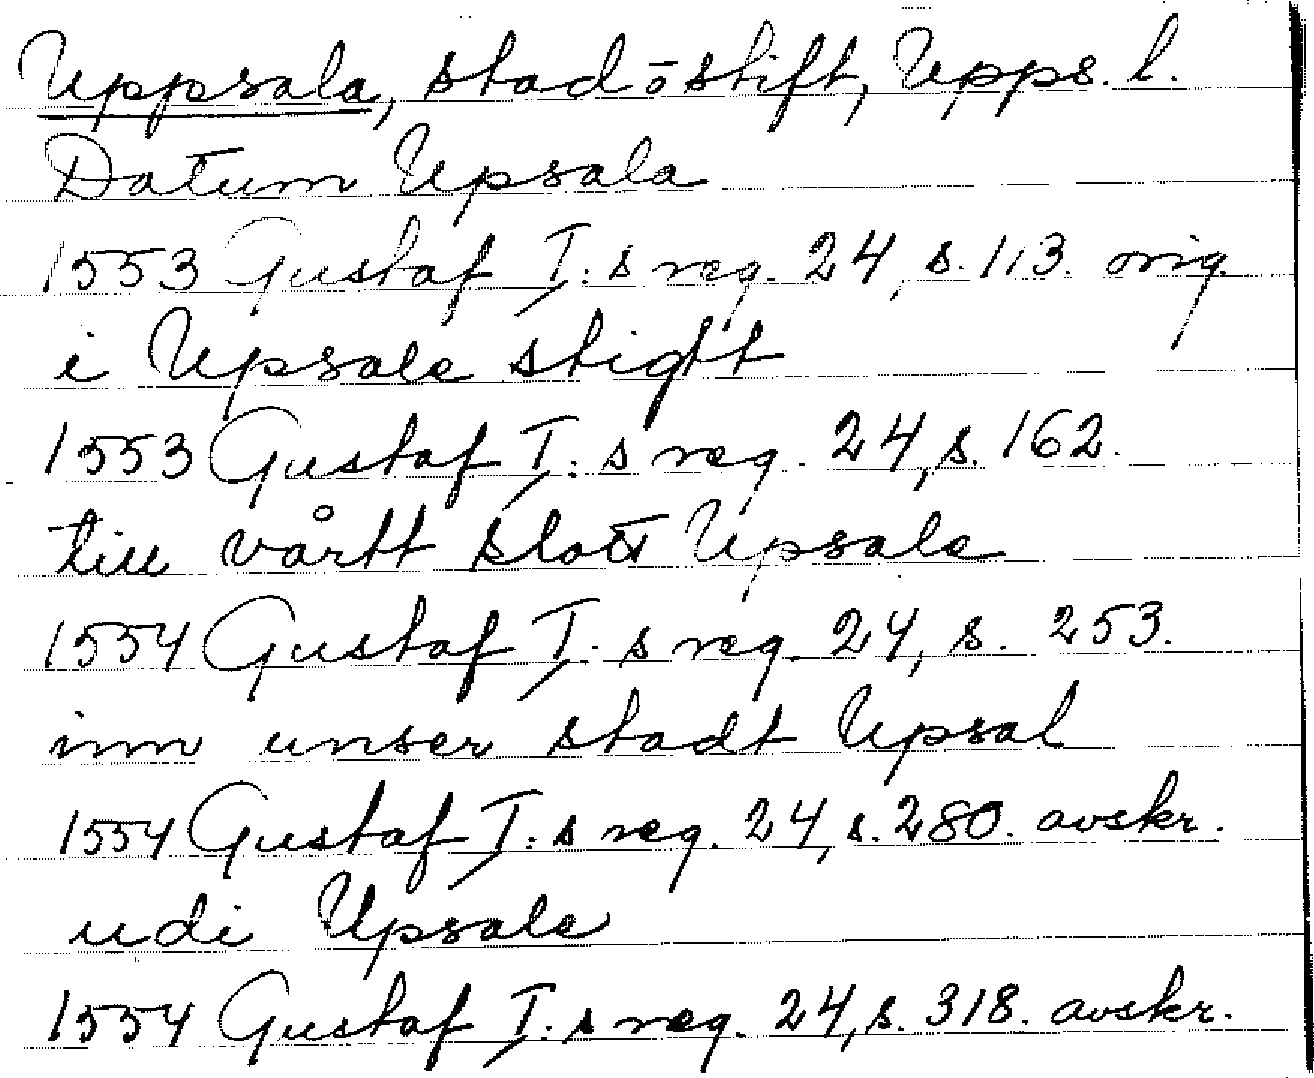 Uppsala, stad o stift, Upps. l.
Datum Upsala
1553 Gustaf I:s reg. 24, s. 113. orig.
i Upsale stigtt
1553 Gustaf I:s reg. 24, s. 162.
till vårtt slott Upsale
1554 Gustaf I:s reg. 24, s. 253.
inn unser stadt Upsal
1554 Gustaf I:s reg. 24, s. 280. avskr.
udi Upsale
1554 Gustaf I:s reg. 24, s. 318. avskr.